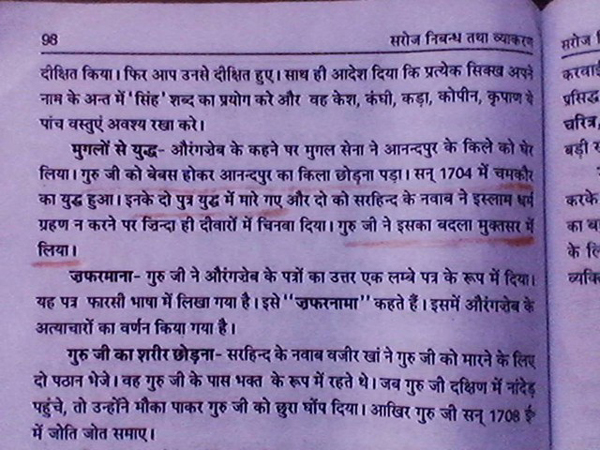 98 सरोज निबन्ध तथा व्याकरण
दीक्षित किया। फिर आप उनसे दीक्षित हुए। साथ ही आदेश दिया कि प्रत्येक सिक्ख अपने
नाम के अन्त में 'सिंह' शब्द का प्रयोग करे और वह केश, कंघी, कड़ा, कोपीन, कृपाण ये
पांच वस्तुएं अवश्य रखा करे।
मुगलों से युद्ध- औरंगज़ेब के कहने पर मुगल सेना ने आनन्दपुर के किले को घेर
लिया। गुरु जी को बेबस होकर आनन्दपुर का किला छोड़ना पड़ा। सन् 1704 में चमकौर
का युद्ध हुआ। इनके दो पुत्र युद्ध में मारे गए और दो को सरहिन्द के नवाब ने इस्लाम धर्म
ग्रहण न करने पर ज़िन्दा ही दीवारों में चिनवा दिया। गुरु जी ने इसका बदला मुक्तसर में
लिया।
ज़फरमाना- गुरु जी ने औरंगज़ेब के पत्रों का उत्तर एक लम्बे पत्र के रूप में दिया।
यह पत्र फारसी भाषा में लिखा गया है। इसे "ज़फरनामा" कहते हैं। इसमें औरंगज़ेब के
अत्याचारों का वर्णन किया गया है।
गुरु जी का शरीर छोड़ना- सरहिन्द के नवाब वजीर खां ने गुरु जी को मारने के लिए
दो पठान भेजे। वह गुरु जी के पास भक्त के रूप में रहते थे। जब गुरु जी दक्षिण में नांदेड़
पहुंचे, तो उन्होंने मौका पाकर गुरु जी को छुरा घोंप दिया। आखिर गुरु जी सन् 1708 ई॰
में जोति जोत समाए।
सरोज
करवाई
प्रसिद्ध
चरित्र,
बड़ी
करके
का
के
व्यक्ति